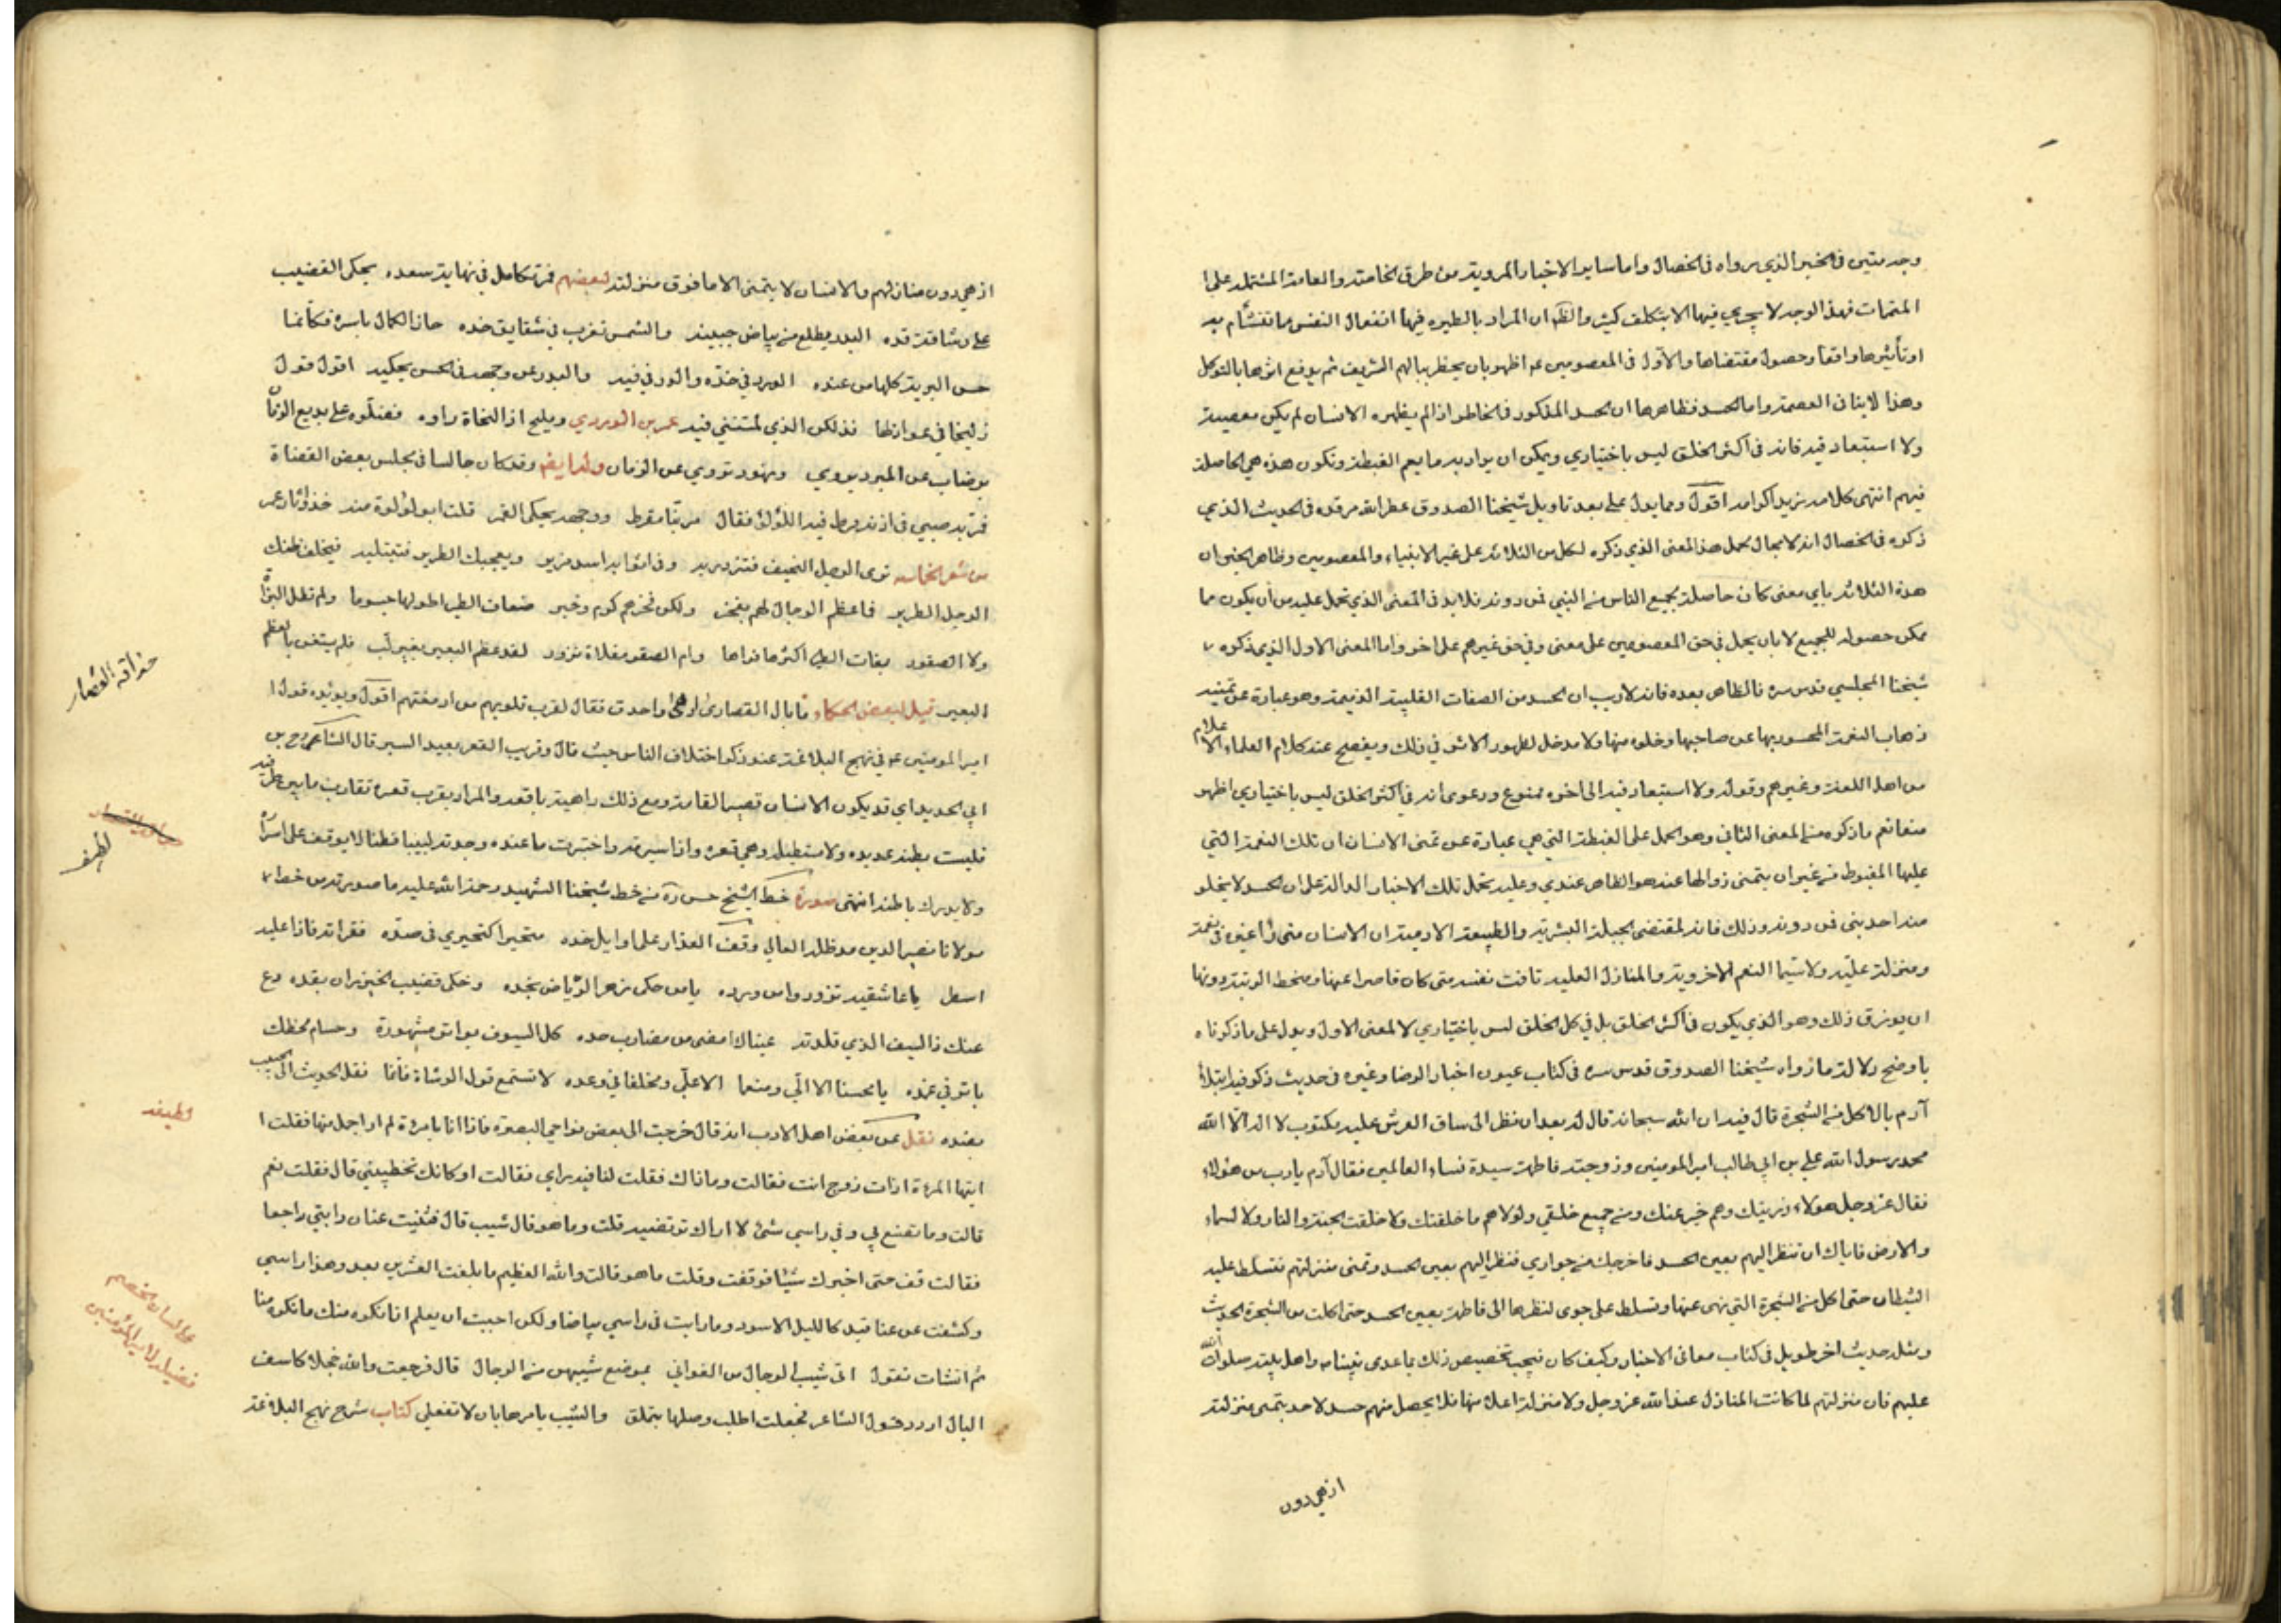 وجه متين في الخبر الذي رواه في الخصال واما ساير الاخبار المروية من طرق الخاصة والعامة المشتملة على ا
المتمات فهذا الوجه لا يجري فيها الا بتكلف كثير والظ ان المراد بالطيره فيها انفعال النفس بما تتشأم به
او تأثيرها واقعا وحصول مقتضاها والاول في المعصومين ع اظهر بان يخطر ببالهم الشريف ثم يدفع اثرها بالتوكل
وهذا لا ينافي العصمة واما الحسد فظاهرها ان الحسد المذكور في الخاطر اذا لم يظهره الانسان لم يكن معصية
ولا استبعاد فيه فانه في اكثر الخلق ليس باختياري ويمكن ان يراد به ما يعم الغبطة وتكون هذه هي الحاصلة
فيهم انتهى كلامه زيد اكرامه اقول ومما يدل على بعد تاويل شيخنا الصدوق عطر الله مرقده في الحديث الذي
ذكره في الخصال انه لا مجال لحمل هذا المعنى الذي ذكره لكل من الثلاثة على غير الانبياء والمعصومين وظاهر الخبر ان
هذه الثلاثة باي معنى كان حاصلة بجميع الناس من النبي فمن دونه فلا بد في المعنى الذي تحمل عليه من ان يكون مما
يمكن حصوله للجميع لا بان يحمل في حق المعصومين على معنى وفي حق غيرهم على اخر واما المعنى الاول الذي ذكره
شيخنا المجلسي قدس سره فالظاهر بعده فانه لا ريب ان الحسد من الصفات القلبية الذميمة وهو عبارة عن تمنيه
ذهاب النعمة المحسود بها عن صاحبها وخلوه منها ولا مدخل لظهور الاثر في ذلك ويفصح عنه كلام العلماء الاعلام
من اهل اللغة وغيرهم وقوله ولا استبعاد فيه الى اخره ممنوع ودعوى انه في اكثر الخلق ليس باختياري اظهر
منعا نعم ما ذكره من المعنى الثاني وهو الحمل على الغبطة التي هي عبارة عن تمنى الانسان ان تلك النعمة التي
عليها المغبوط من غير ان يتمنى زوالها عنه هو الظاهر عندي وعليه تحمل تلك الاخبار الدالة على ان الحسد لا يخلو
منه احد بنى فمن دونه وذلك فانه لمقتضى الجبلة البشرية والطبيعة الادمية ان الانسان متى رأى غيره في نعمة
ومنزلة علية ولا سيما النعم الاخروية والمنازل العلية تاقت نفسه متى كان قاصرا عنها ومنحط الرتبة دونها
ان يرزق ذلك وهو الذي يكون في اكثر الخلق بل في كل الخلق ليس باختياري لا المعنى الاول ويدل على ما ذكرناه
باوضح دلالة ما رواه شيخنا الصدوق قدس سره في كتاب عيون اخبار الرضا وغيره في حديث ذكر فيه ابتلا
آدم بالاكل من الشجرة قال فيه ان الله سبحانه قال له بعد ان نظر الى ساق العرش عليه مكتوب لا اله الا الله
محمد رسول الله علي بن ابي طالب امير المومنين وزوجته فاطمة سيدة نساء العالمين فقال آدم يا رب من هؤلاء
فقال عز وجل هولاء ذريتك وهم خير عنك ومن جميع خلقي ولولاهم ما خلقتك ولا خلقت الجنة والنار ولا السماء
والارض فاياك ان تنظر اليهم بعين الحسد فاخرجك من جواري فنظر اليهم بعين الحسد وتمنى منزلتهم فتسلط عليه
الشطان حتى اكل من الشجرة التي نهى عنها وتسلط على حوى لنظرها الى فاطمة بعين الحسد حتى اكلت من الشجرة الحديث
ومثله حديث اخر طويل في كتاب معاني الاخبار وكيف كان فيجب تخصيص ذلك بما عدى نبينا ص واهل بيته صلوات الله
عليهم فان منزلتهم لما كانت المنازل عند الله عز وجل ولا منزلة اعلا منها فلا يحصل منهم حسد لاحد بتمنى منزلته
اذ هي دون
اذ هي دون منازلهم والانسان لا يتمنى الا ما فوق منزلته لبعضهم قمر تكامل في نهاية سعده يحكي القضيب
على رشاقة قده البدر يطلع من بياض جبينه والشمس تغرب في شقايق خده حاز الكمال باسره فكأنما
حسن البرية كلها من عنده الورد في خده والدر في فيه والبدر من وجهه في الحسن يحكيه اقول قول
زليخا في عواذلها فذلكن الذي لمتنني فيه عمر بن الوردي ومليح اذا النحاة راوه فضلوه على بديع الزما
برضاب عن المبرد يروي ونهود تروي عن الرمان وله ايضا وقد كان جالسا في مجلس بعض القضاة
فمر به صبي في اذنه قرط فيه اللؤلؤ فقال مر بنا مقرط ووجهه يحكي القمر قلت ابو لؤلوة منه خذوا ثار عمر
من شعر الحماسه ترى الرجل النحيف فتزدريه وفي اثوابه اسد مزير ويعجبك الطرير فتبتليه فيخلف ظنك
الرجل الطرير فما عظم الرجال لهم بفخر ولكن فخرهم كرم وخير ضعاف الطير اطولها جسوما ولم تطل البزا
ولا الصقور بغاث الطير اكثرها فراخا وام الصقر مقلاة نزور لقد عظم البعير بغير لب فلم يستغن بالعظم
البعير قيل لبعض الحكماء ما بال القصار ادهى واحذق فقال لقرب قلوبهم من ادمغتهم اقول ويؤيده قول ا
امير المومنين ع في نهج البلاغة عند ذكر اختلاف الناس حيث قال وقريب القعر بعيد السبر قال الشا
ابي الحديد اي قد يكون الانسان قصير القامة ومع ذلك داهية باقعه والمراد بقرب قعره تقارب ما بين طرفيه
فليست بطنه مديده ولا مستطيلة وهي قعره واذا سبرته واختبرت ما عنده وجدته لبيبا فطنا لا يوقف على اسرا
ولا يدرك باطنه انتهى صورة خط الشيخ حسن ره من خط شيخنا الشهيد رحمة الله عليه ما صورته من خط
مولانا نصير الدين مد ظله العالي وقف العذار على اوايل خده متحيرا كتحيري في صده فقراته فاذا عليه
اسطر يا عاشقيه تزودوا من ورده يا من حكى زهر الرياض بخده وحكى قضيب الخيزران بقده دع
عنك ذا السيف الذي قلدته عيناك امضى من مضارب حده كل السيوف بواتر مشهورة وحسام لحظك
باتر في غمده يا محسنا الا الي ومنعما الا علي ومخلفا في وعده لا تستمع قول الوشاة فانما نقل الحديث الى الحبيب
بضده نقل عن بعض اهل الادب انه قال خرجت الى بعض نواحي البصرة فاذا انا بامرة لم ار اجمل منها فقلت ا
ايتها المرءة اذات زوج انت فقالت وما ذاك فقلت لنا فيه راي فقالت او كانك تخطبني قال فقلت نعم
قالت وما تصنع بي وفي راسي شئ لا اراك ترتضيه قلت وما هو قال شيب قال فثنيت عنان دابتي راجعا
فقالت قف حتى اخبرك شيئا فوقفت وقلت ما هو قالت والله العظيم ما بلغت العشرين بعد وهذا راسي
وكشفت عن عناقيد كالليل الاسود وما رايت في راسي بياضا ولكن احببت ان يعلم انا نكره منك ما تكره منا
ثم انشات تقول ارى شيب الرجال من الغواني بموضع شيبهن من الرجال قال فرجعت والله خجلا كاسف
البال اردد قول الشاعر فجعلت اطلب وصلها بتملق والشيب يامرها بان لا تفعلي كتاب شرح نهج البلاغة
حذاقة القصار
لطيفه
لطيفه
على لسان الخصم
فضيلة لامير المؤمنين